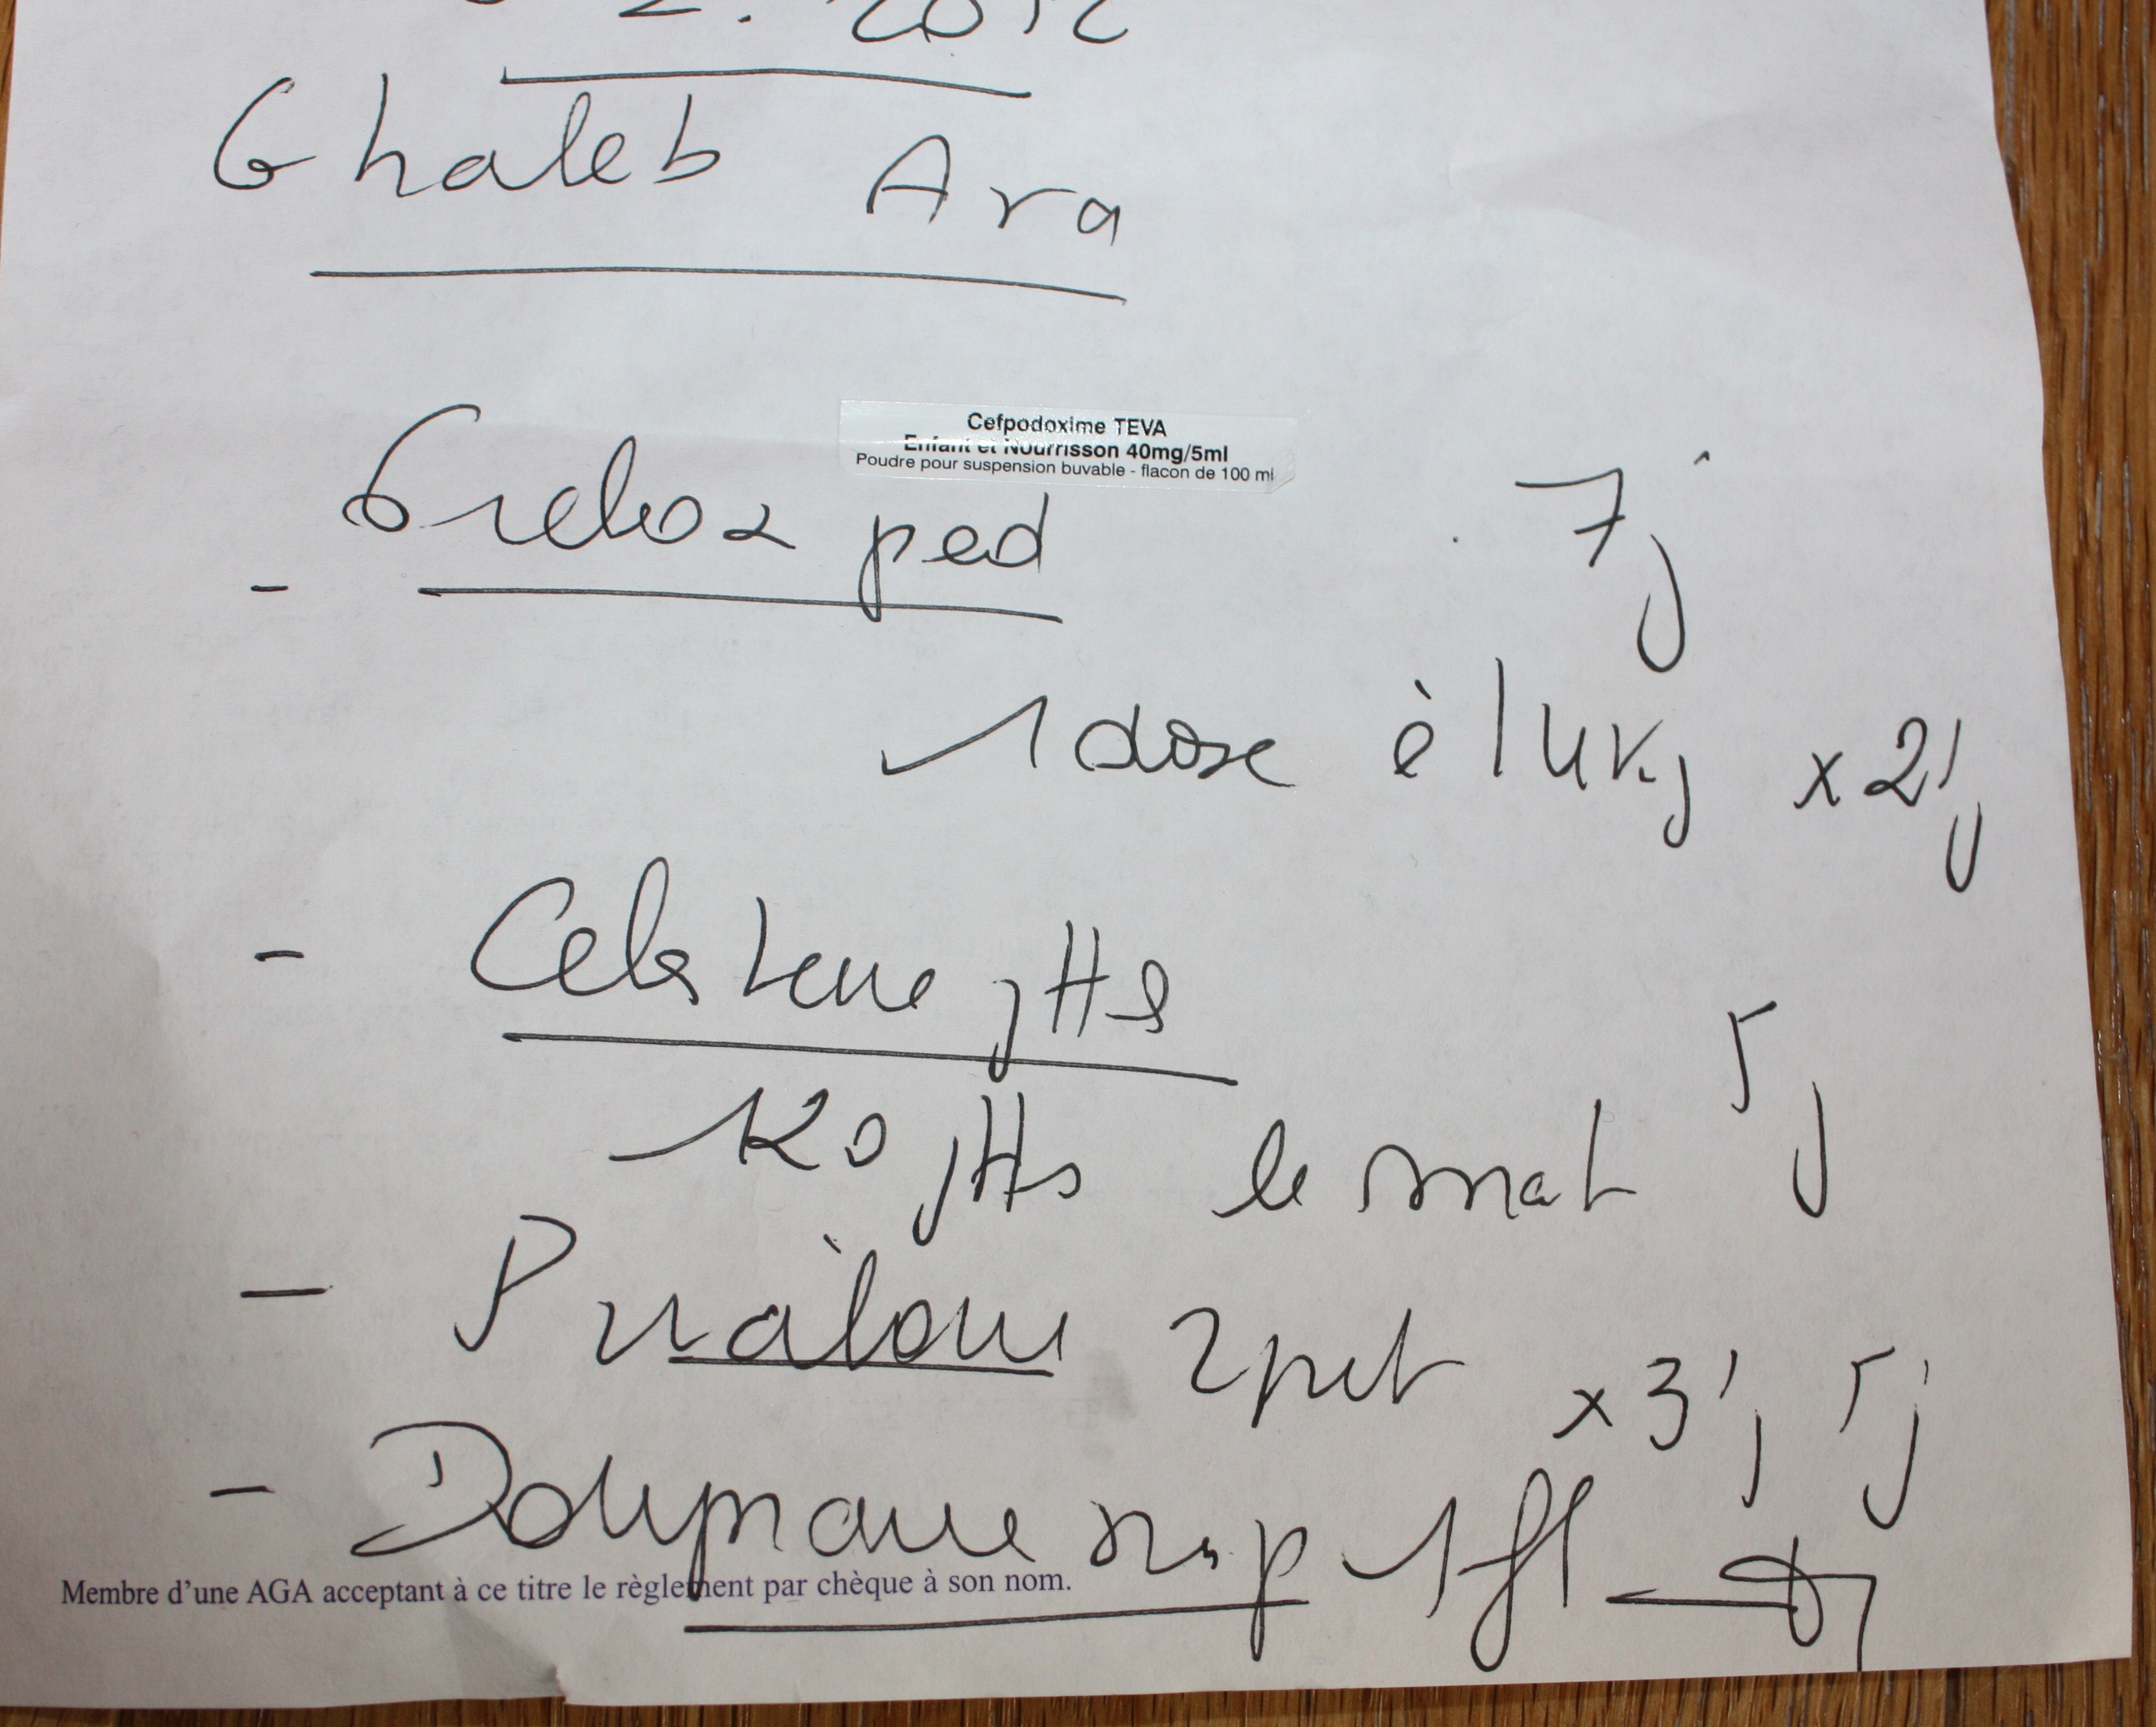 2. 2012
Ghaleb Ara
Cefpodoxime TEVA
Enfant et Nourrisson 40mg/5ml
Poudre pour suspension buvable - flacon de 100 ml
- Orelox ped 7j
1 dose à 14 Kg x 2/j
- Celestene gtts
120 gtts le mat 5j
- 2 x 3/j 5j
- Doliprane sirop 1 fl
Membre d'une AGA acceptant à ce titre le règlement par chèque à son nom.